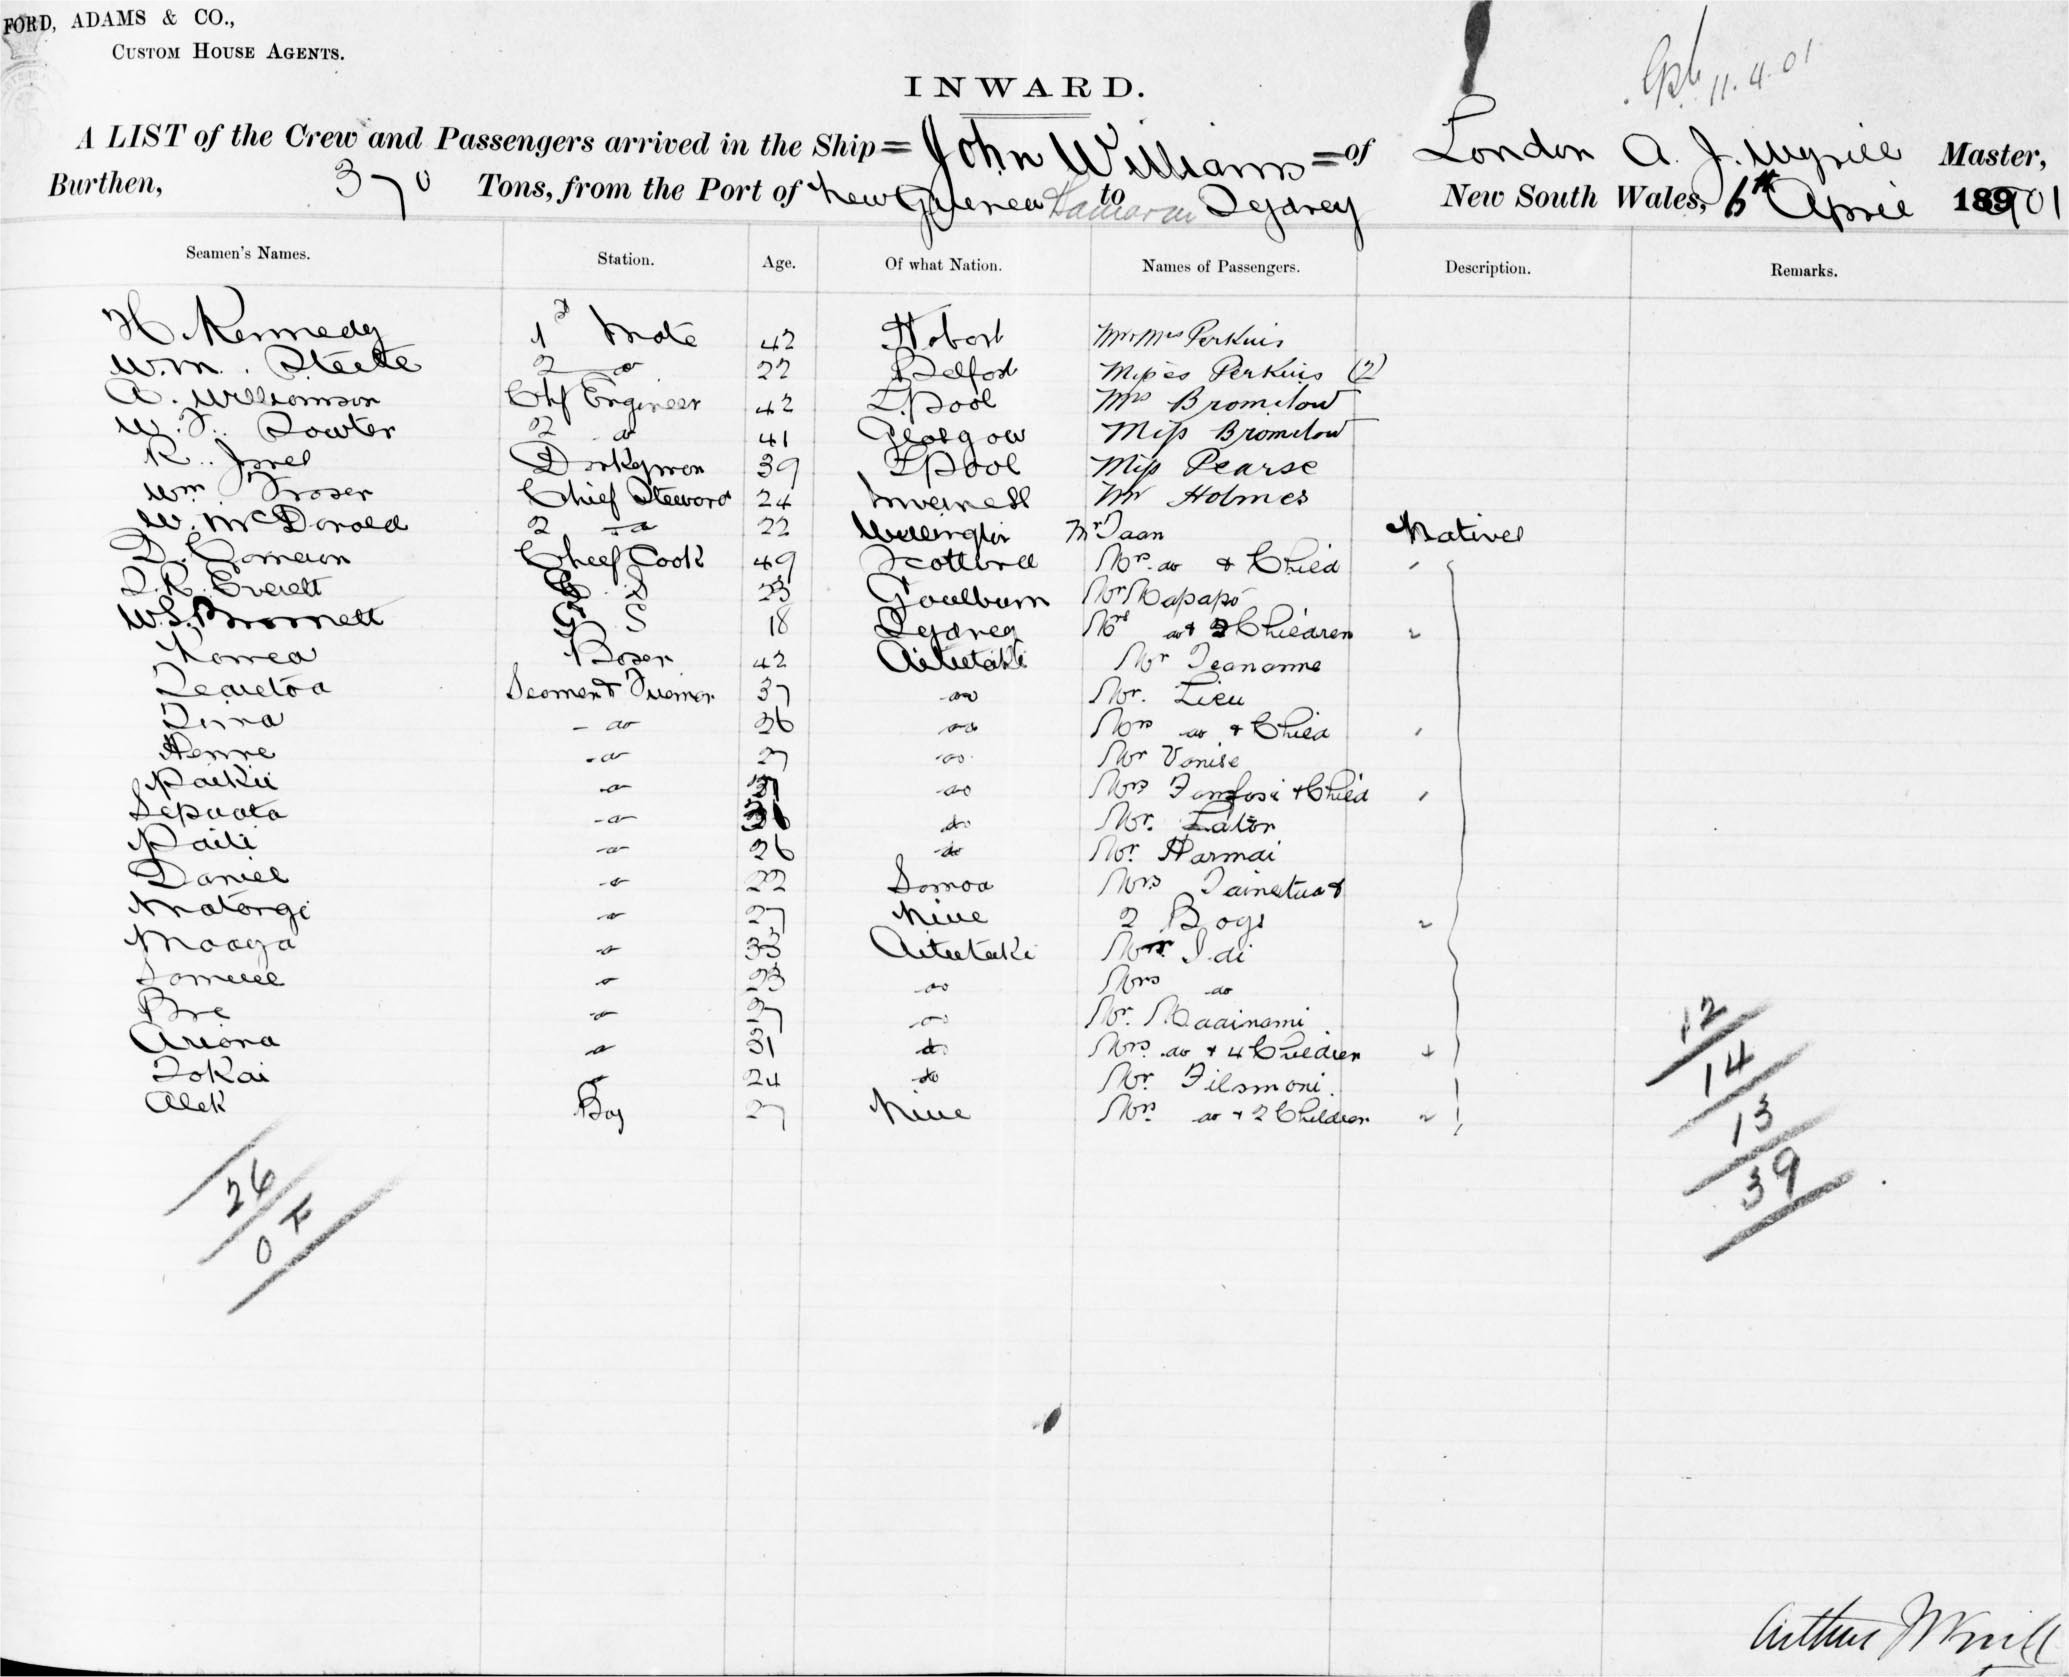 FORD, ADAMS & CO.,
CUSTOM HOUSE AGENTS.
11.4.01
INWARD.
A LIST of the Crew and Passengers arrived in the Ship = John Williams = of London A. J. Master,
Burthen, 370 Tons, from the Port of New Guinea to Sydney New South Wales, 6th April 1901
Seamen's Names. Station. Age. Of what Nation. Names of Passengers. Description. Remarks.
H Kennedy 1st Mate 42 Hobart Mr & Mrs Perkins
Wm. Steele 2 do 22 Belfast Misses Perkins (2)
A. Williamson Chf Engineer 42 L.pool Mrs Bromilow
W. F. Sowter 2 do 41 Glasgow Miss Bromilow
R. Jones Donkeyman 39 Lpool Miss Pearse
Wm. Fraser Chief Steward 24 Inverness Mr Holmes
W. McDonald 2 do 22 Wellington Mr Taan Natives
D. Cameron Chief Cook 49 Scotland Mrs. do & Child
Everett 23 Goulburn Mr
W.S. S 18 Sydney Mrs do & 2 Children 2
Korrea Bosen 42 Aitutaki Mr Teananne
Teauetoa Seaman & Fireman 37 do Mr. Lieu
Tima do 26 do Mrs do & Child
do 27 do Mr Vanise
do 37 do Mrs & Child
Sepuata do do Mr. Lator
do 26 do Mr. Harmai
Daniel do 22 Samoa Mrs &
Matangi do 27 Niue 2 Boys 2
Maaga do 33 Aitutaki Mr. Idi
Samuel do 23 do Mrs do
Bre do 27 do Mr.
Ariona do 31 do Mrs. do & 4 Children 4
Tokai do 24 do Mr. Filemoni
Alek Boy 27 Niue Mrs do & 2 Children 2
26
0 F
12
14
13
39
Arthur